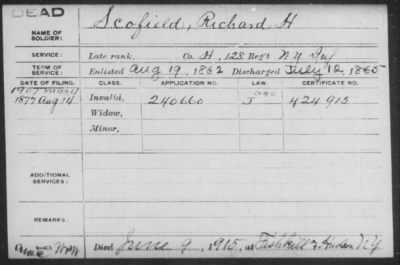 DEAD
NAME OF SOLDIER: Scofield, Richard H
SERVICE: Late rank, Co. H, 128 Regt N Y Inf
TERM OF SERVICE: Enlisted Aug 19, 1862 Discharged July 12, 1865
DATE OF FILING. CLASS. APPLICATION NO. LAW. CERTIFICATE NO.
1907
1877 Aug 14 Invalid, 240660 J 424915
Widow,
Minor,
ADDITIONAL SERVICES:
REMARKS:
Died June 9, 1915, at Fishkill NY